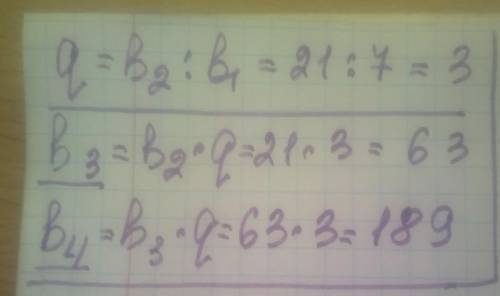 q = b₂ : b₁ = 21 : 7 = 3
b₃ = b₂ · q = 21 · 3 = 63
b₄ = b₃ · q = 63 · 3 = 189